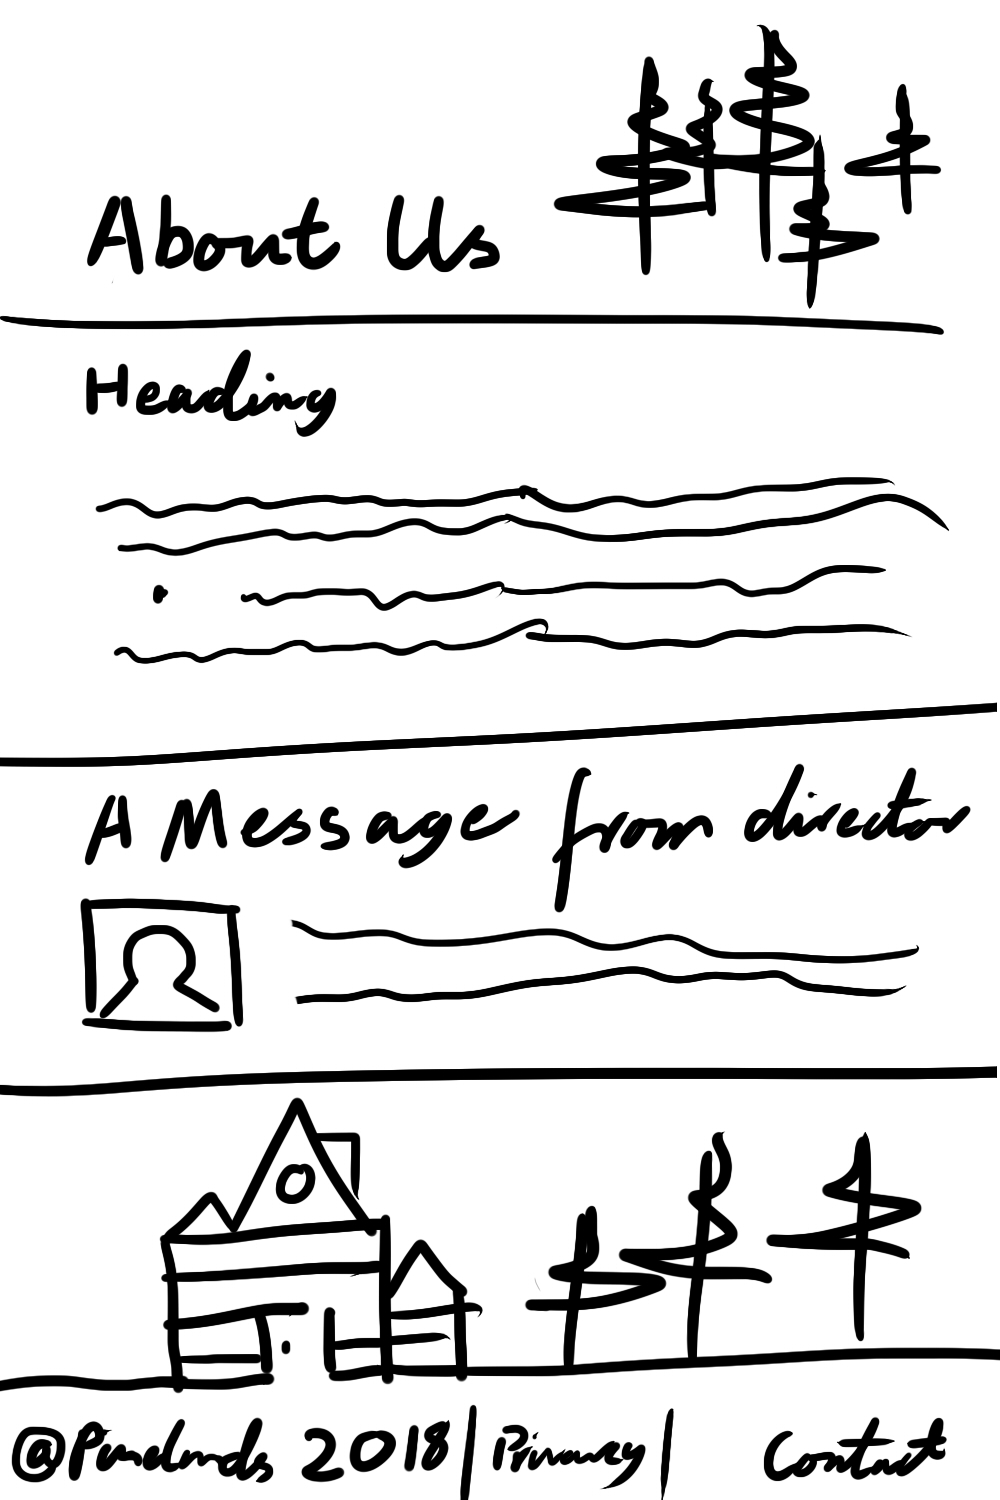 About Us
Heading
A Message from director
2018 | Privacy | Contact